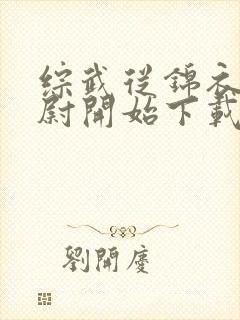 綜武從錦衣
尉開始下載
劉開慶